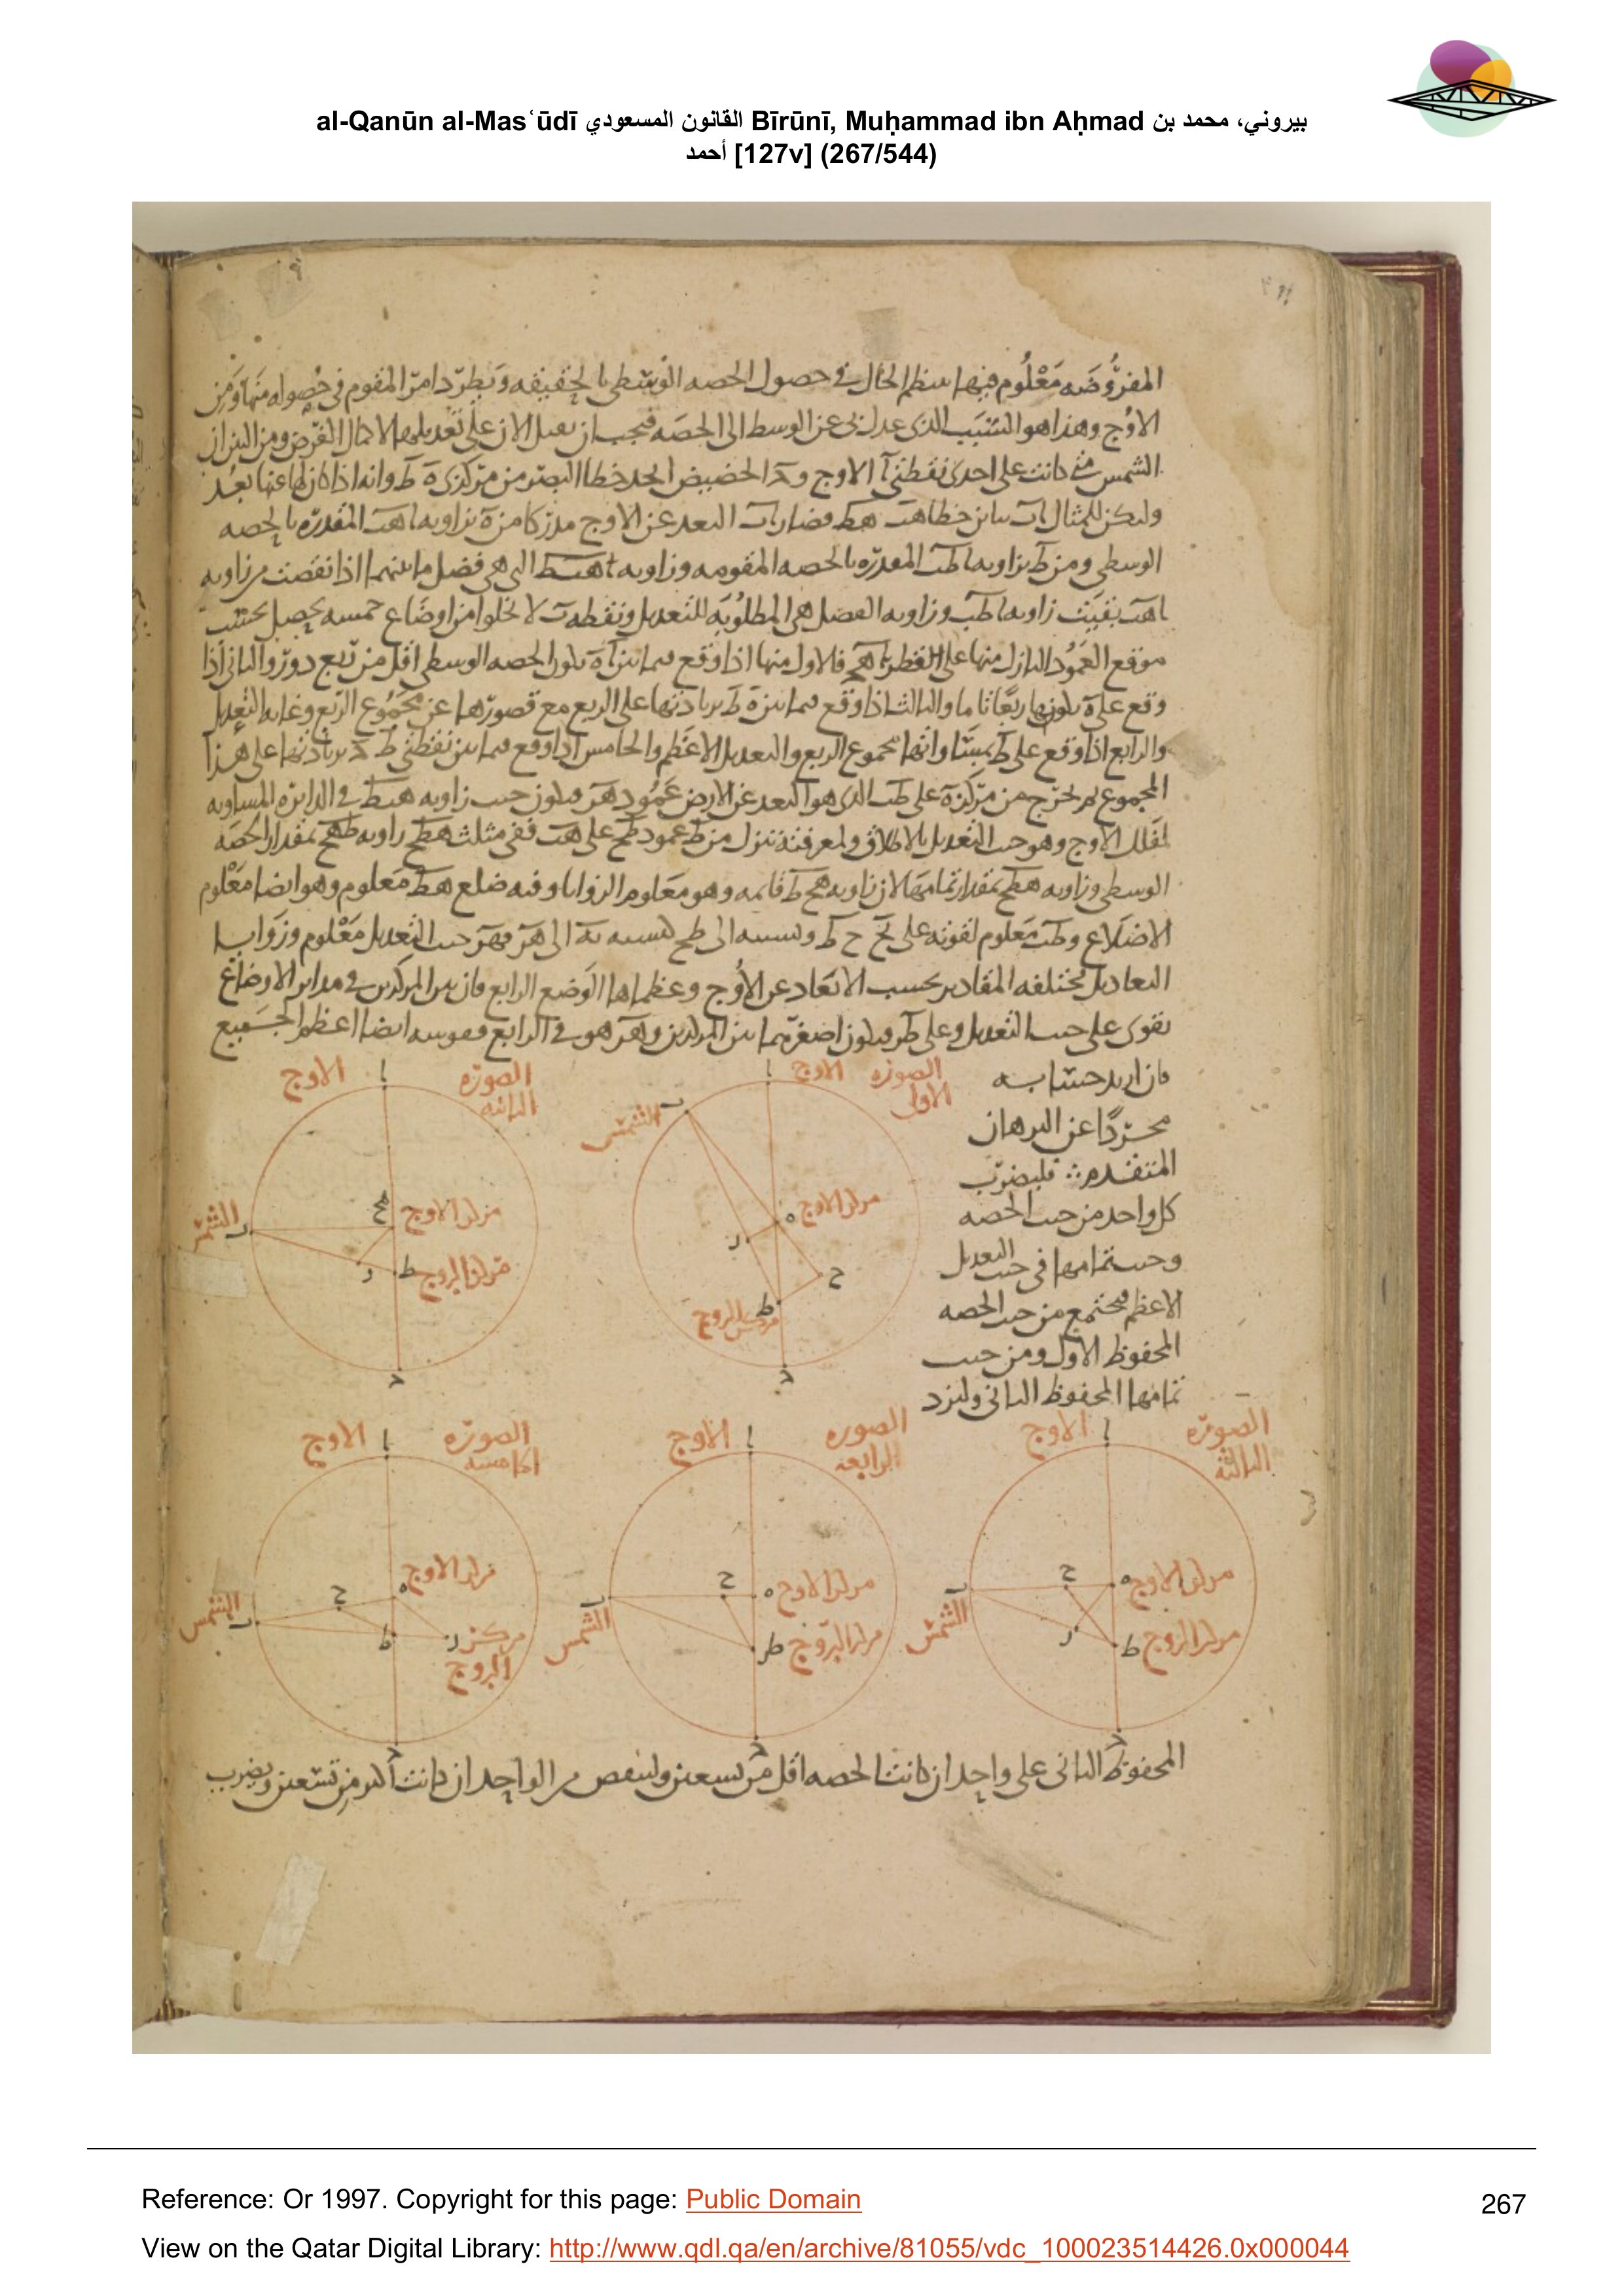 al-Qanūn al-Masʿūdī القانون المسعودي Bīrūnī, Muḥammad ibn Aḥmad بيروني، محمد بن
أحمد [127v] (267/544)
المفروضه معلوم فيها ينتظم الحال في حصول الحصه الوسطى بالحقيقه ويطرد امر المقوم في حصوله منها ومن
الاوج وهذا هو السبب الذي عدل بي عن الوسط الى الحصه فيجب ان نقبل الان على تعديلها لاكمال الغرض ومن البين ان
الشمس متى كانت على احدى نقطتي ا الاوج و د الحضيض اتحد خطا البصر من مركزي ه ط وانه اذا كان لها عنها بعد
وليكن للمثال اب تباين خطا هب طب فصار اب البعد عن الاوج مدركا من ه بزاويه اهب المقدره بالحصه
الوسطى ومن ط بزاويه اطب المقدره بالحصه المقومه وزاويه هبط التي هي فضل ما بينهما اذا نقصت من زاويه
اهب بقيت زاويه اطب وزاويه الفضل هي المطلوبه للتعديل ونقطه ب لا تخلوا من اوضاع خمسه يحصل بحسب
موقع العمود النازل منها على القطر فالاول منها اذا وقع فيما بين ا ه تكون الحصه الوسطى اقل من ربع دور والثاني اذا
وقع على ه بكونها ربعا تاما والثالث اذا وقع فيما بين ه ط بزيادتها على الربع مع قصورها عن مجموع الربع وغايه التعديل
والرابع اذا وقع على ط وانها مجموع الربع والتعديل الاعظم والخامس اذا وقع فيما بين نقطتي ط د بزيادتها على هذا
المجموع ثم نخرج من مركز ه على طب الذي هو البعد عن الارض عمود هر فيكون جيب زاويه هبط في الدائره المساويه
لفلك الاوج وهو جيب التعديل بالاطلاق ولمعرفته ننزل من ط عمود طح على هب ففي مثلث هطح زاويه طهح بمقدار الحصه
الوسطى وزاويه هطح بمقدار تمامها لان زاويه هحط قائمه وهو معلوم الزوايا وفيه ضلع هط معلوم وهو ايضا معلوم
الاضلاع وطب معلوم لقوته على بح حط ونسبته الى طح كنسبه به الى هر فهر جيب التعديل معلوم وزوايا
التعاديل مختلفه المقادير بحسب الابعاد عن الاوج وعظماها الوضع الرابع فان بين المركزين في سائر الاوضاع
يقوى على جيب التعديل وعلى طر فيكون اصغر مما بين المركزين وهر هو في الرابع فقوسه ايضا اعظم الجميع
فان اريد حسابه
مجردا عن البرهان
المتقدم فليضرب
كل واحد من جيب الحصه
وجيب تمامها في جيب التعديل
الاعظم فيجتمع من جيب الحصه
المحفوظ الاول ومن جيب
تمامها المحفوظ الثاني وليزد
الصوره الاولى
الاوج
ا
ب
الشمس
مركز الاوج
ه
ر
ح
ط
مركز البروج
د
الصوره الثانيه
الاوج
ا
الشمس
ب
مركز الاوج
ط
مركز البروج
ر
د
الصوره الثالثه
الاوج
ا
ح
ه
مركز الاوج
ب
الشمس
ر
ط
مركز البروج
د
الصوره الرابعه
الاوج
ا
ح
ه
مركز الاوج
ب
الشمس
ط
مركز البروج
د
الصوره الخامسه
الاوج
ا
ح
ه
مركز الاوج
ب
الشمس
ط
ر
مركز البروج
د
المحفوظ الثاني على واحد ان كانت الحصه اقل من تسعين ولينقص من الواحد ان كانت اكثر من تسعين ويضرب
Reference: Or 1997. Copyright for this page: Public Domain
267
View on the Qatar Digital Library: http://www.qdl.qa/en/archive/81055/vdc_100023514426.0x000044